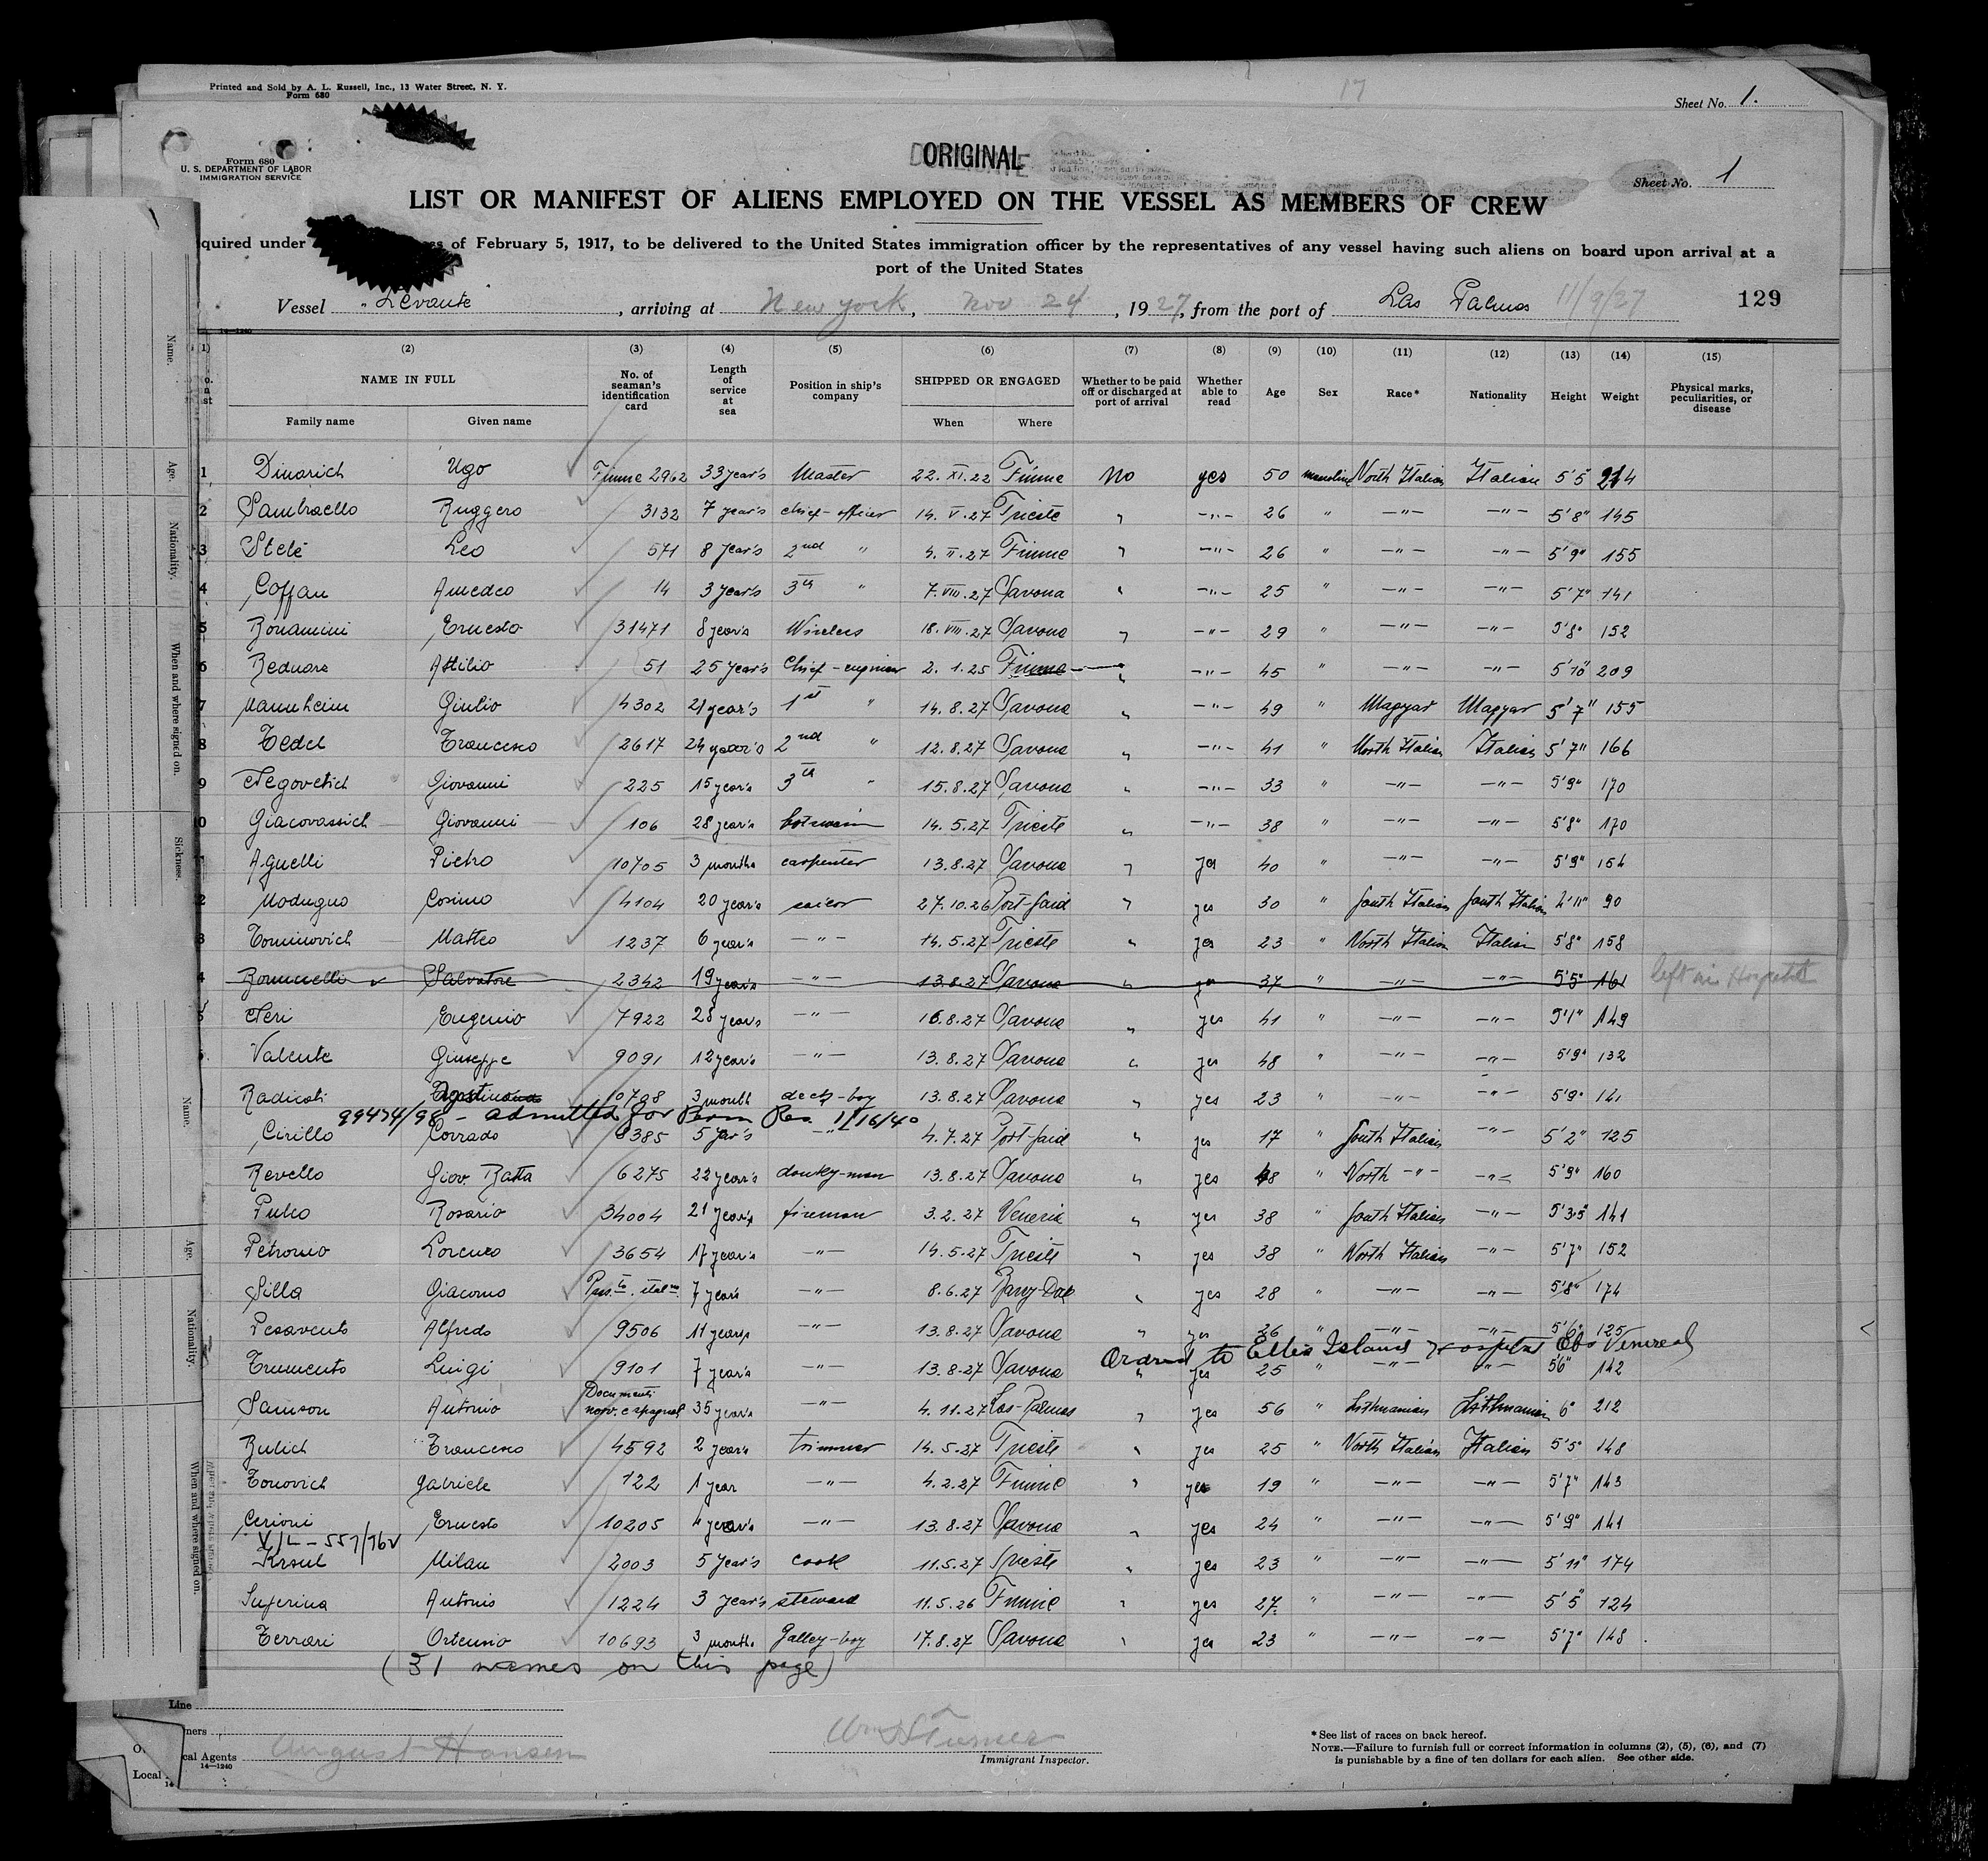 Printed and Sold by A. L. Russell, Inc., 13 Water Street, N. Y.
Form 680
17
Sheet No. 1.
Form 680
U. S. DEPARTMENT OF LABOR
IMMIGRATION SERVICE
ORIGINAL
Sheet No. 1
LIST OR MANIFEST OF ALIENS EMPLOYED ON THE VESSEL AS MEMBERS OF CREW
quired under of February 5, 1917, to be delivered to the United States immigration officer by the representatives of any vessel having such aliens on board upon arrival at a
port of the United States
Vessel "Levante , arriving at New York, Nov 24, 1927, from the port of Las Palmas 11/9/27 129
14—1240
(1) (2) (3) (4) (5) (6) (7) (8) (9) (10) (11) (12) (13) (14) (15)
NAME IN FULL No. of seaman's identification card Length of service at sea Position in ship's company SHIPPED OR ENGAGED Whether to be paid off or discharged at port of arrival Whether able to read Age Sex Race* Nationality Height Weight Physical marks, peculiarities, or disease
Family name Given name When Where
1 Dinarich Ugo Fiume 2962 33 year's Master 22. XI. 22 Fiume No yes 50 masculine North Italian Italian 5'5 214
2 Sambraello Ruggero 3132 7 year's chief-officer 14. V. 27 Trieste " —"— 26 " —"— —"— 5'8" 145
3 Stelè Leo 571 8 year's 2nd " 4. II. 27 Fiume " —"— 26 " —"— —"— 5'9" 155
4 Coffau Amedeo 14 3 year's 3th " 7. VIII. 27 Savona " —"— 25 " —"— —"— 5'7" 141
5 Bonamini Ernesto 31471 8 year's Wireless 18. VIII. 27 Savona " —"— 29 " —"— —"— 5'8" 152
6 Bednarz Attilio 51 25 year's Chief-engineer 2. 1. 25 Fiume " —"— 45 " —"— —"— 5'10" 209
7 Mannheim Giulio 4302 21 year's 1st " 14. 8. 27 Savona " —"— 49 " Magyar Magyar 5'7" 155
8 Tedel Francesco 2617 24 year's 2nd " 12. 8. 27 Savona " —"— 41 " North Italian Italian 5'7" 166
9 Negovetich Giovanni 225 15 year's 3th " 15. 8. 27 Savona " —"— 33 " —"— —"— 5'9" 170
0 Giacovassich Giovanni 106 28 year's botswain 14. 5. 27 Trieste " —"— 38 " —"— —"— 5'8" 170
1 Agnelli Pietro 10705 3 months carpenter 13. 8. 27 Savona " yes 40 " —"— —"— 5'9" 154
2 Modugno Cosimo 4104 20 year's sailor 27. 10. 26 Port-Said " yes 30 " South Italian South Italian 4'11" 90
3 Tominovich Matteo 1237 6 year's —"— 14. 5. 27 Trieste " yes 23 " North Italian Italian 5'8" 158
4 Salvatore 2342 19 year's —"— 13.8.27 Savona " yes 37 " —"— —"— 5'5" 161 left in Hospital
5 Neri Eugenio 7922 28 years —"— 16. 8. 27 Savona " yes 41 " —"— —"— 5'1" 149
Valente Giuseppe 9091 12 year's —"— 13. 8. 27 Savona " yes 48 " —"— —"— 5'9" 132
Radicati 10708 3 month deck-boy 13. 8. 27 Savona " yes 23 " —"— —"— 5'9" 141
99474/98 - admitted for Perm Res. 1/16/40
Cirillo Corrado 8385 5 year's —"— 4. 7. 27 Port-Said " yes 17 " South Italian —"— 5'2" 125
Revello Giov. Batta 6275 22 year's donkey-man 13. 8. 27 Savona " yes 48 " North —"— —"— 5'9" 160
Puleo Rosario 34004 21 year's fireman 3. 2. 27 Venezia " yes 38 " South Italian —"— 5'3.5" 141
Petronio Lorenzo 3654 17 year's —"— 14. 5. 27 Trieste " yes 38 " North Italian —"— 5'7" 152
Silla Giacomo Pass.to ital.no 7 year's —"— 8. 6. 27 Barry-Dock " yes 28 " —"— —"— 5'8" 174
Pesavento Alfredo 9506 11 years —"— 13. 8. 27 Savona " yes 26 " —"— —"— 5'6" 125
Ordered to Ellis Island Hospital Obs Venereal
Trumento Luigi 9101 7 year's —"— 13. 8. 27 Savona " yes 25 " —"— —"— 5'6" 142
Samson Antonio Documenti norv. e spagnol 35 year's —"— 4. 11. 27 Las-Palmas " yes 56 " Lithuanian Lithuanian 6" 212
Bulich Francesco 4592 2 year's trimmer 14. 5. 27 Trieste " yes 25 " North Italian Italian 5'5" 148
Tonovich Gabriele 122 1 year —"— 4. 2. 27 Fiume " yes 19 " —"— —"— 5'7" 143
Cerioni Ernesto 10205 4 year's —"— 13. 8. 27 Savona " yes 24 " —"— —"— 5'9" 141
V/L - 557/762
Krsul Milan 2003 5 year's cook 11. 5. 27 Trieste " yes 23 " —"— —"— 5'11" 174
Superina Antonio 1224 3 year's steward 11. 5. 26 Fiume " yes 27 " —"— —"— 5'5" 124
Ferrari Ortensio 10693 3 months Galley-boy 17. 8. 27 Savona " yes 23 " —"— —"— 5'7" 148
(31 names on this page)
Line
ners
cal Agents August Hansen
14—1240
Local
Wm H Turner
Immigrant Inspector.
* See list of races on back hereof.
NOTE.—Failure to furnish full or correct information in columns (2), (5), (6), and (7)
is punishable by a fine of ten dollars for each alien. See other side.
Name.
Age.
Nationality.
When and where signed on.
Sickness.
Name.
Age.
Nationality.
When and where signed on.